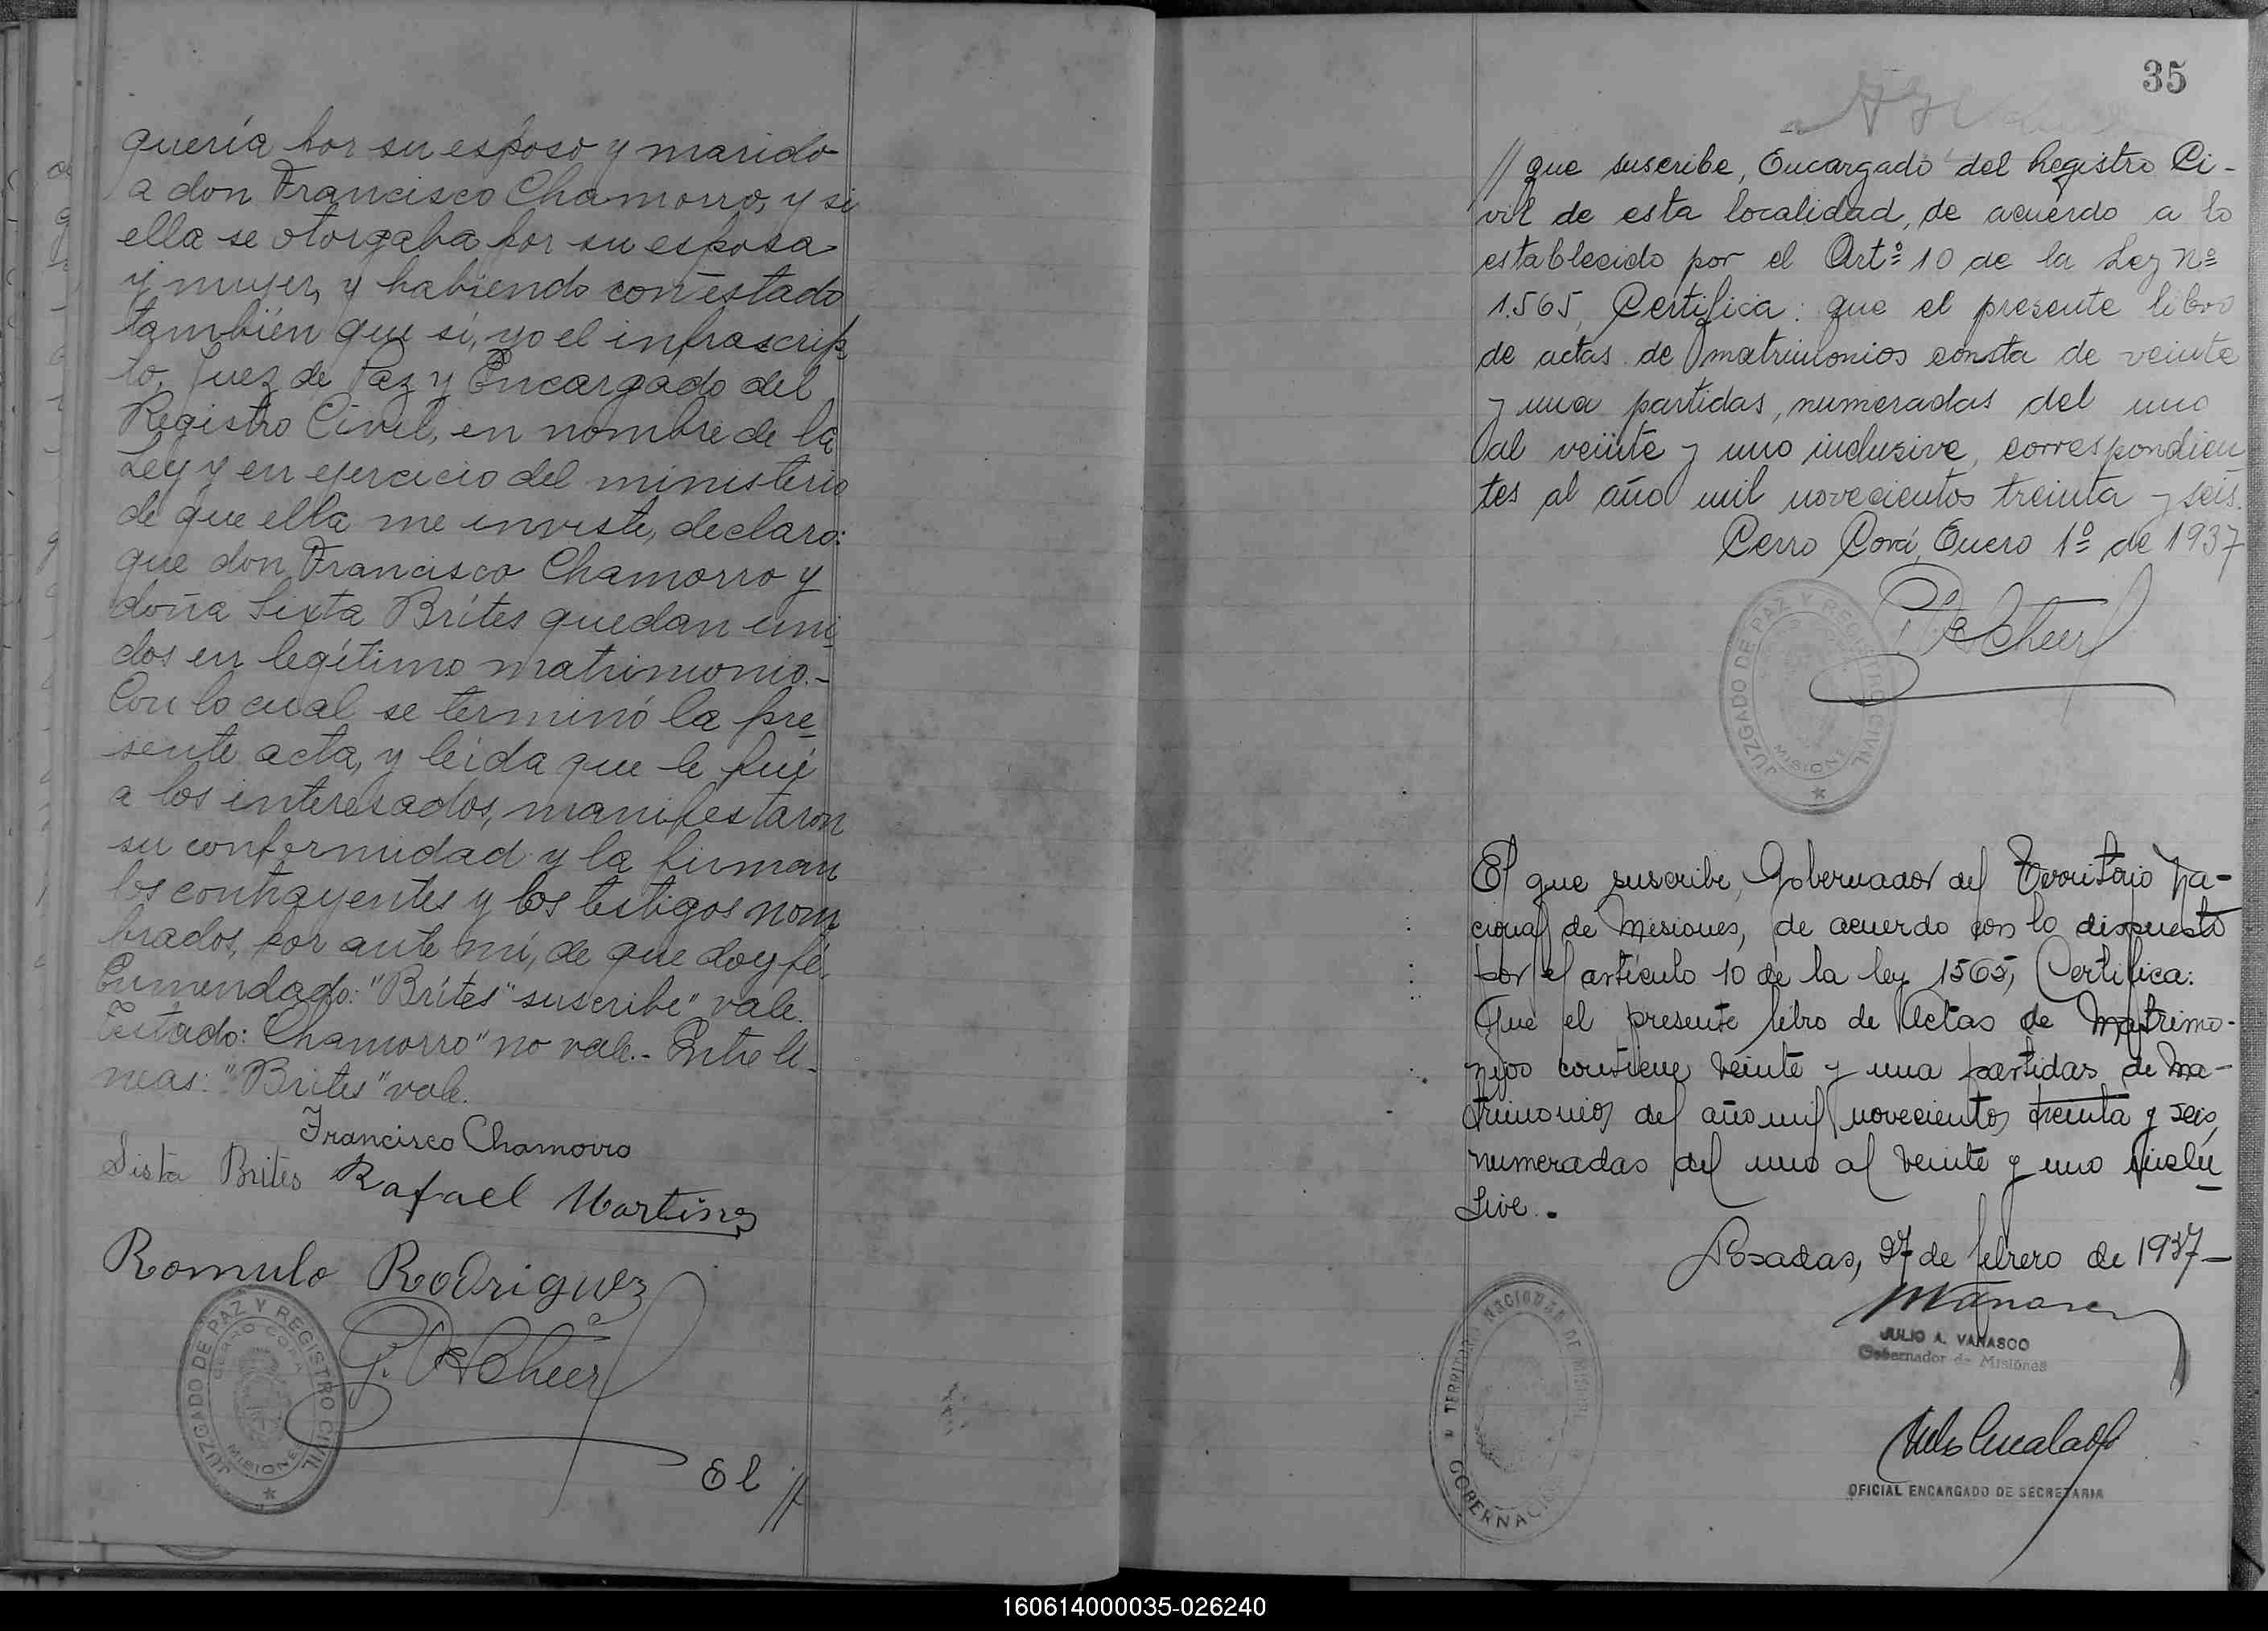 quería por su esposo y marido
a don Francisco Chamorro, y si
ella se otorgaba por su esposa
y mujer, y habiendo contestado
también que sí, yo el infrascrip
to, Juez de Paz y Encargado del
Registro Civil, en nombre de la
Ley y en ejercicio del ministerio
de que ella me inviste, declaro:
que don Francisco Chamorro y
doña Sixta Brítes quedan uni
dos en legítimo matrimonio.-
Con lo cual se terminó la pre
sente acta, y leída que le fué
a los interesados, manifestaron
su conformidad y la firman
los contrayentes y los testigos nom
brados, por ante mí, de que doy fé.
Enmendado: "Brítes" suscribe" vale.
Testado: Chamorro" no vale.- Entre lí-
neas: "Brites" vale.
Francisco Chamorro
Sista Brites Rafael Martines
Romulo Rodriguez
JUZGADO DE PAZ Y REGISTRO CIVIL
CERRO CORA
MISIONES
El //
35
// que suscribe, Encargado del Registro Ci-
vil de esta localidad, de acuerdo a lo
establecido por el Artº 10 de la Ley nº
1.565, Certifica: que el presente libro
de actas de matrimonios consta de veinte
y una partidas, numeradas del uno
al veinte y uno inclusive, correspondien
tes al año mil novecientos treinta y seis.
Cerro Corá, Enero 1º de 1937
JUZGADO DE PAZ Y REGISTRO CIVIL
MISIONES
El que suscribe, Gobernador del Territorio Na-
cional de Misiones, de acuerdo con lo dispuesto
por el artículo 10 de la ley 1565, Certifica:
Que el presente libro de Actas de Matrimo-
nios contiene veinte y una partidas de Ma-
trimonios del año mil novecientos treinta y seis,
numeradas del uno al veinte y uno inclu
sive.
Posadas, 27 de febrero de 1937-
JULIO A. VANASCO
Gobernador de Misiones
TERRITORIO NACIONAL DE MISIONES
GOBERNACION
OFICIAL ENCARGADO DE SECRETARIA
160614000035-026240